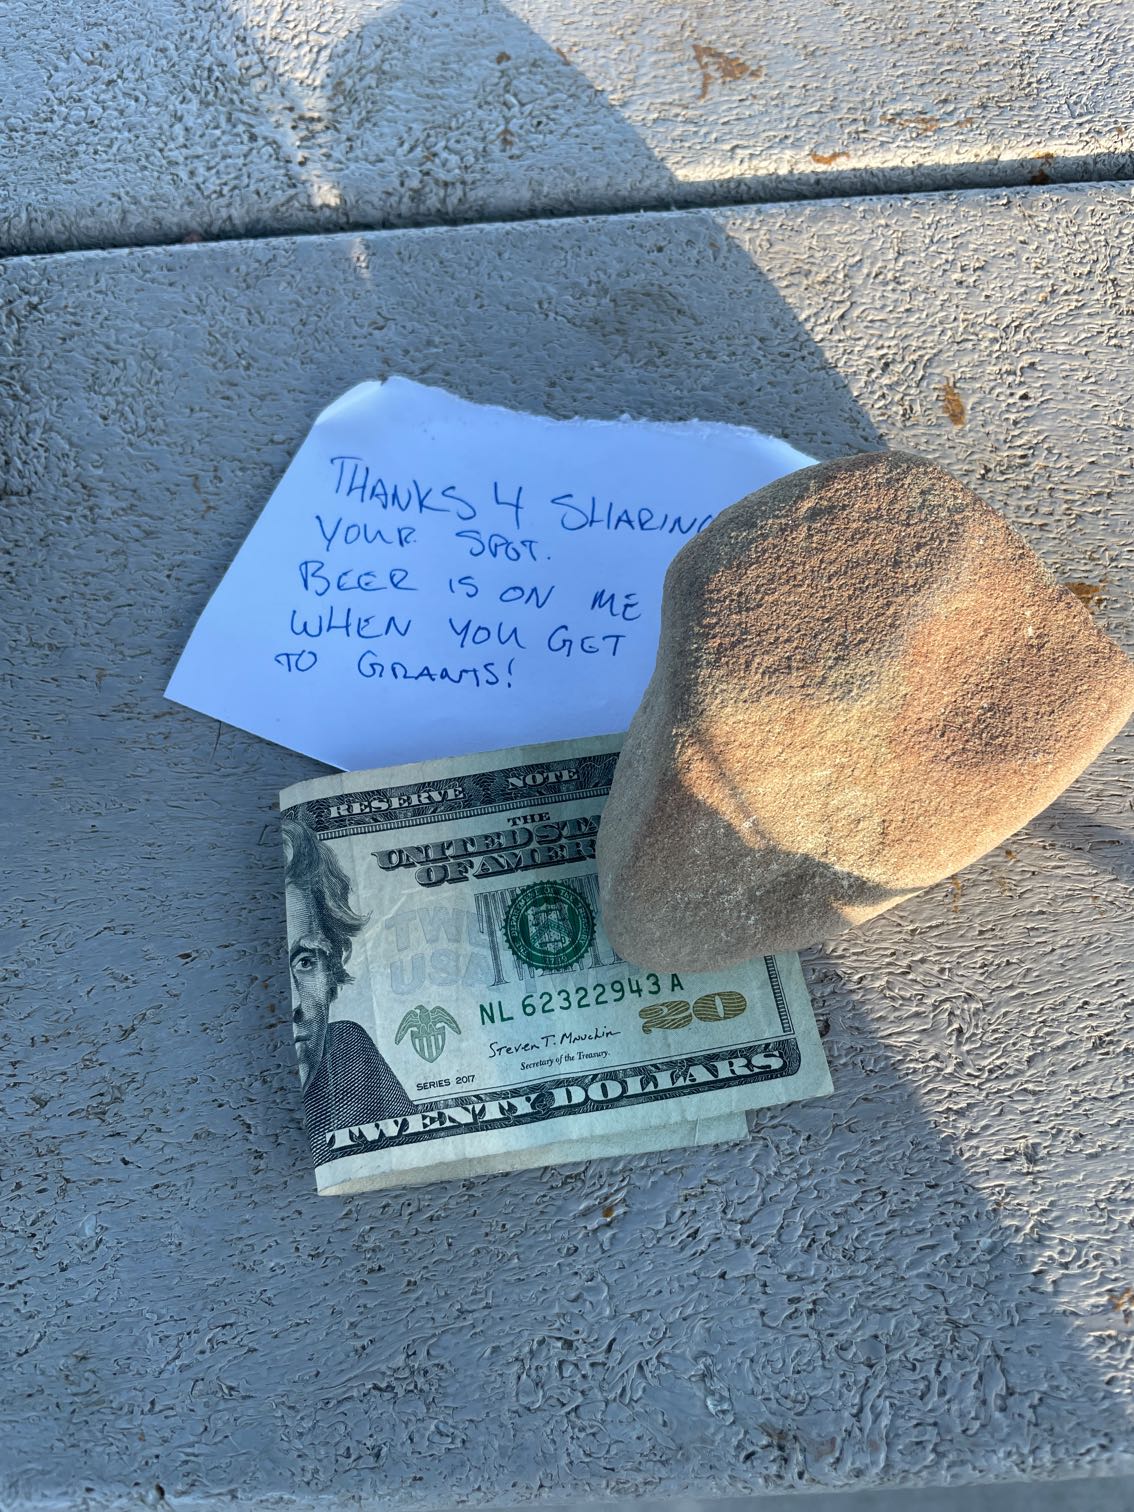 THANKS 4 SHARING
YOUR SPOT.
BEER IS ON ME
WHEN YOU GET
TO GRANTS!
RESERVE NOTE
THE
UNITED STA
OF AMER
TWE
USA
NL 62322943 A
20
Steven T. Mnuchin
Secretary of the Treasury.
SERIES 2017
TWENTY DOLLARS